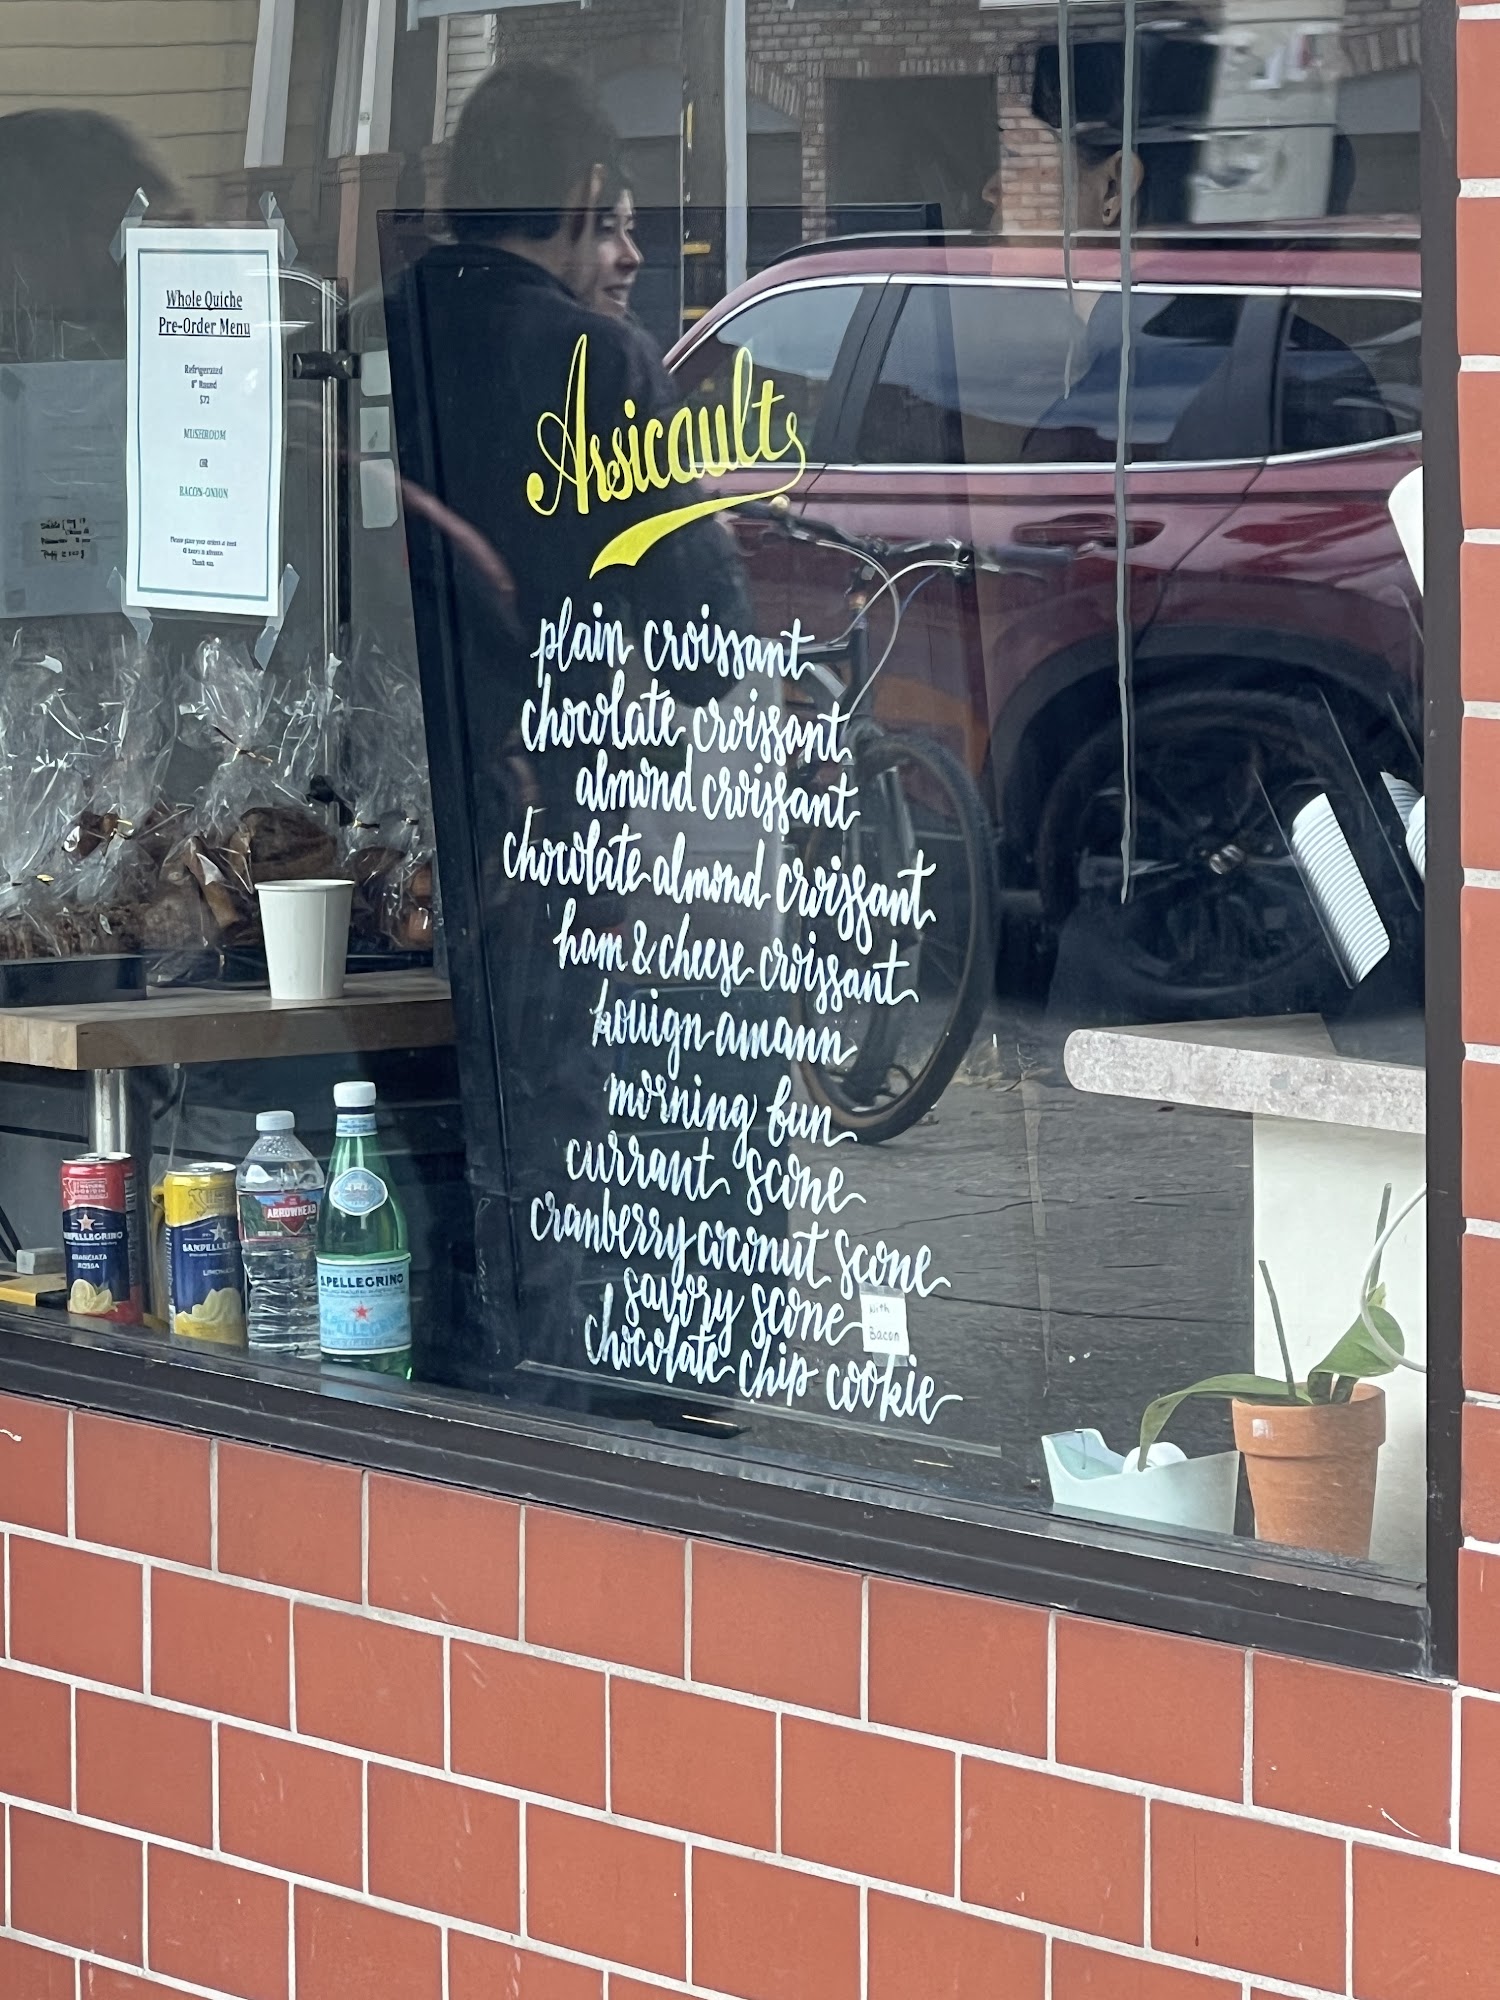 Whole Quiche
Pre-Order Menu
Refrigerated
8" Round
$72
MUSHROOM
OR
BACON-ONION
Please place your orders at least
hours in advance.
Thank you.
Arsicault
plain croissant
chocolate croissant
almond croissant
chocolate almond croissant
ham & cheese croissant
kouign amann
morning bun
currant scone
cranberry coconut scone
savory scone
With
Bacon
chocolate chip cookie
SANPELLEGRINO
ARANCIATA
ROSSA
SANPELLE
LIMONATA
ARROWHEAD
S.PELLEGRINO
S.PELLEGRINO